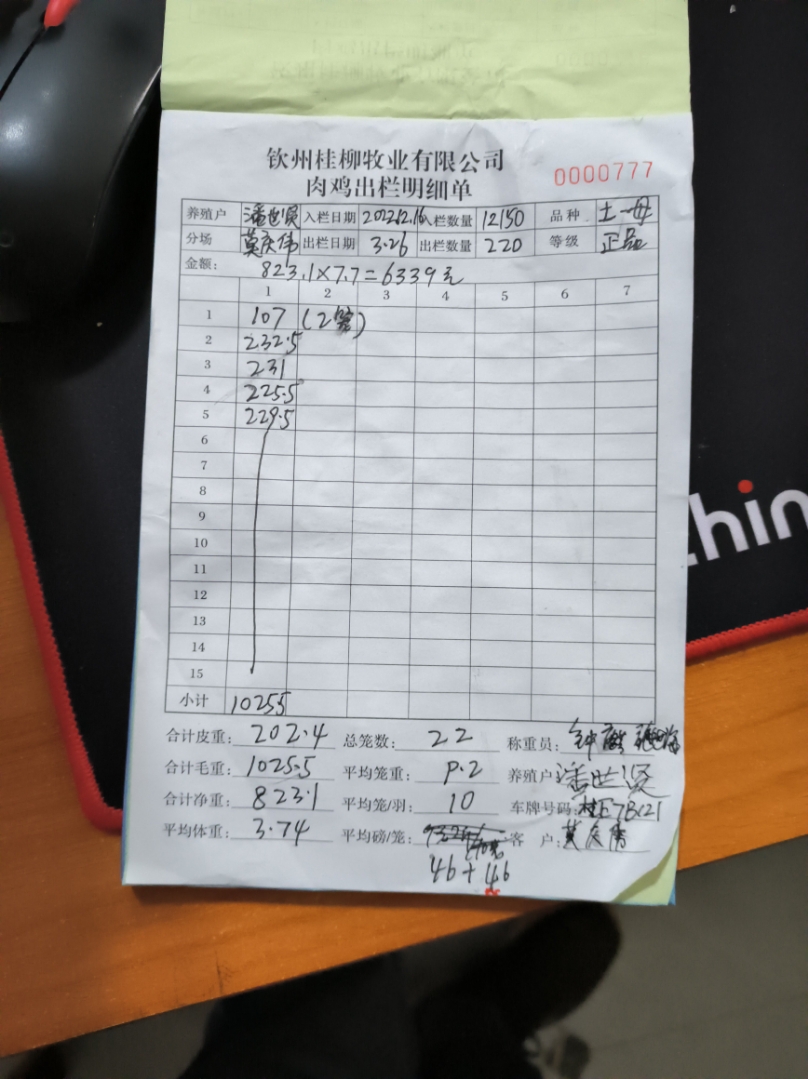 钦州桂柳牧业有限公司
0000777
肉鸡出栏明细单
养殖户 潘世贤 入栏日期 2022.12.16 入栏数量 12150 品种 土一母
分场 莫庆伟 出栏日期 3.26 出栏数量 220 等级 正品
金额: 823.1×7.7=6339元
1 2 3 4 5 6 7
1 107 (2笼)
2 232.5
3 231
4 225.5
5 229.5
6
7
8
9
10
11
12
13
14
15
小计 10255
合计皮重: 202.4 总笼数: 22 称重员: 钟
合计毛重: 1025.5 平均笼重: 9.2 养殖户 潘世贤
合计净重: 823.1 平均笼/羽: 10 车牌号码:
平均体重: 3.74 平均磅/笼: 客 户: 莫庆伟
46+46
thin